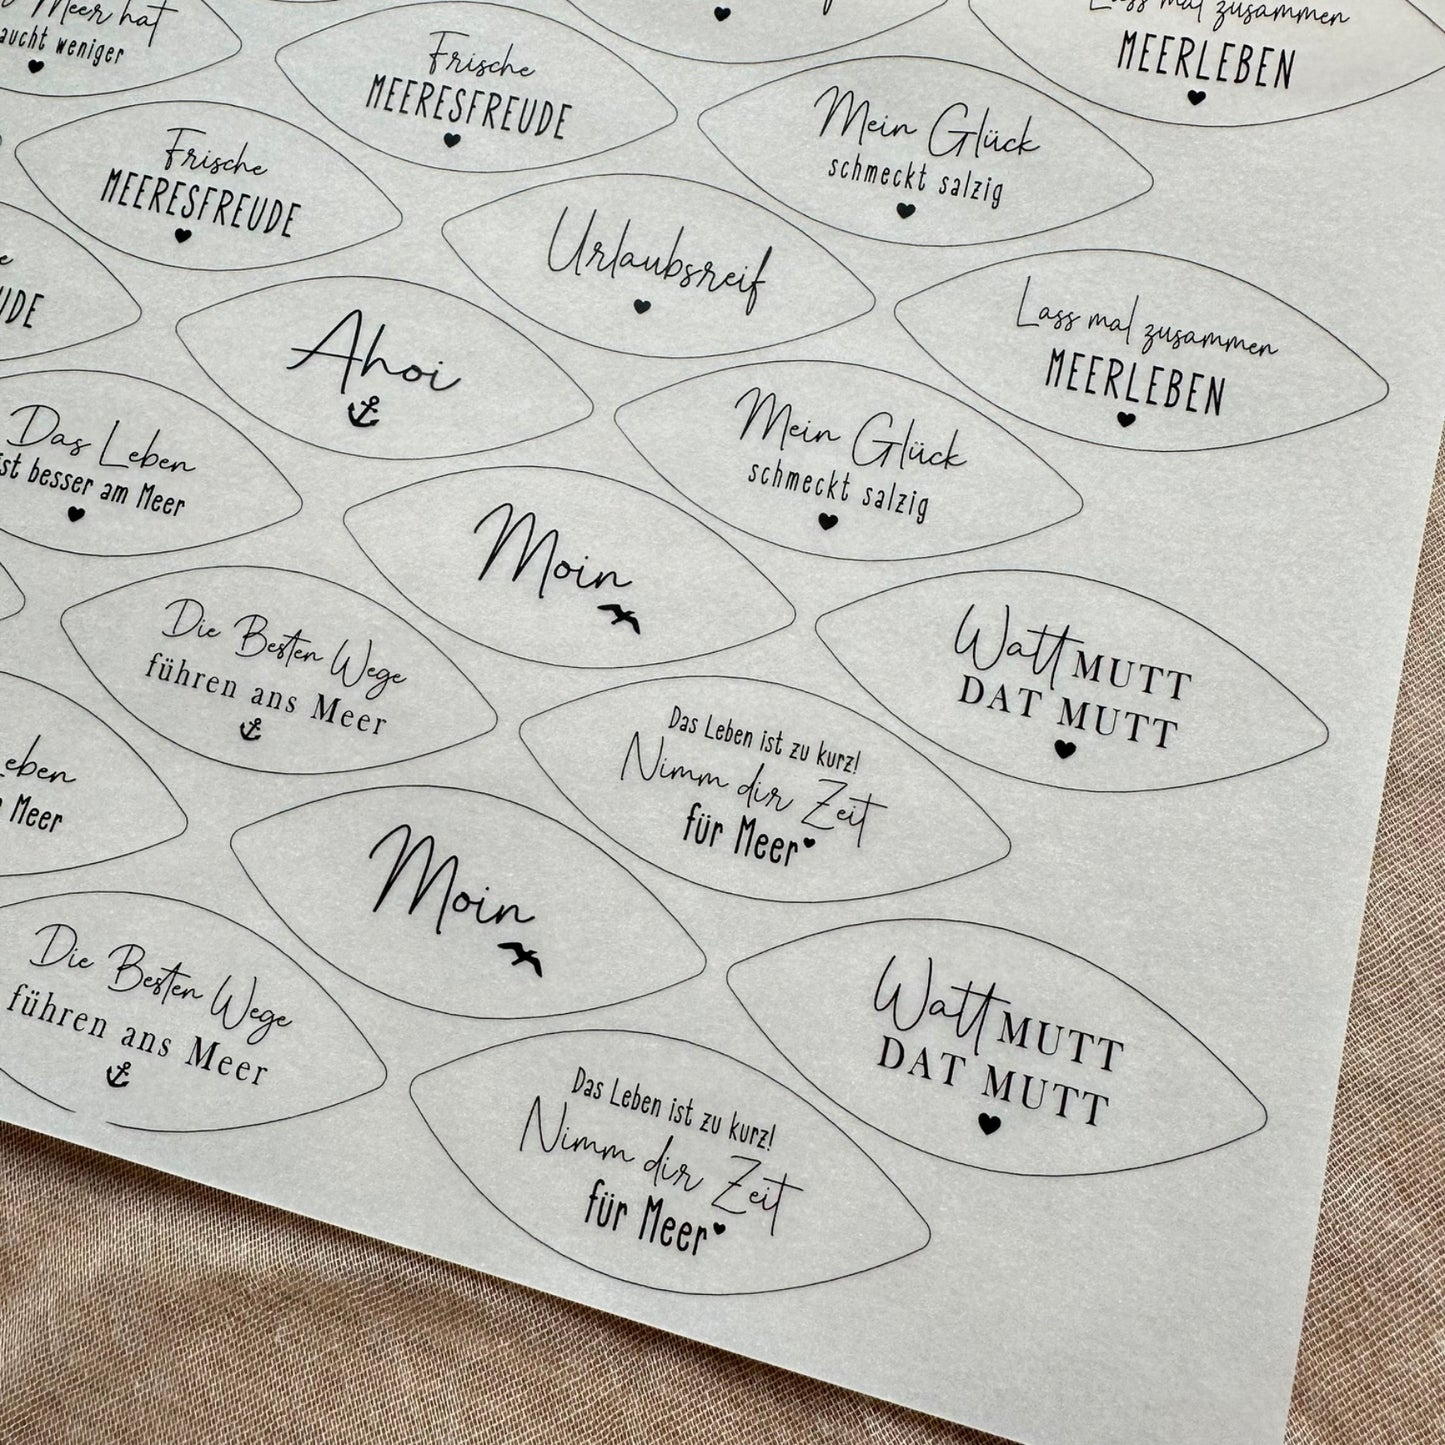 Meer hat
weniger
Frische
MEERESFREUDE
Lass mal zusammen
MEERLEBEN
Frische
MEERESFREUDE
Mein Glück
schmeckt salzig
Urlaubsreif
Lass mal zusammen
MEERLEBEN
Ahoi
Das Leben
besser am Meer
Mein Glück
schmeckt salzig
Moin
Die Besten Wege
führen ans Meer
Watt MUTT
DAT MUTT
Das Leben ist zu kurz!
Nimm dir Zeit
für Meer
Meer
Moin
Die Besten Wege
führen ans Meer
Watt MUTT
DAT MUTT
Das Leben ist zu kurz!
Nimm dir Zeit
für Meer